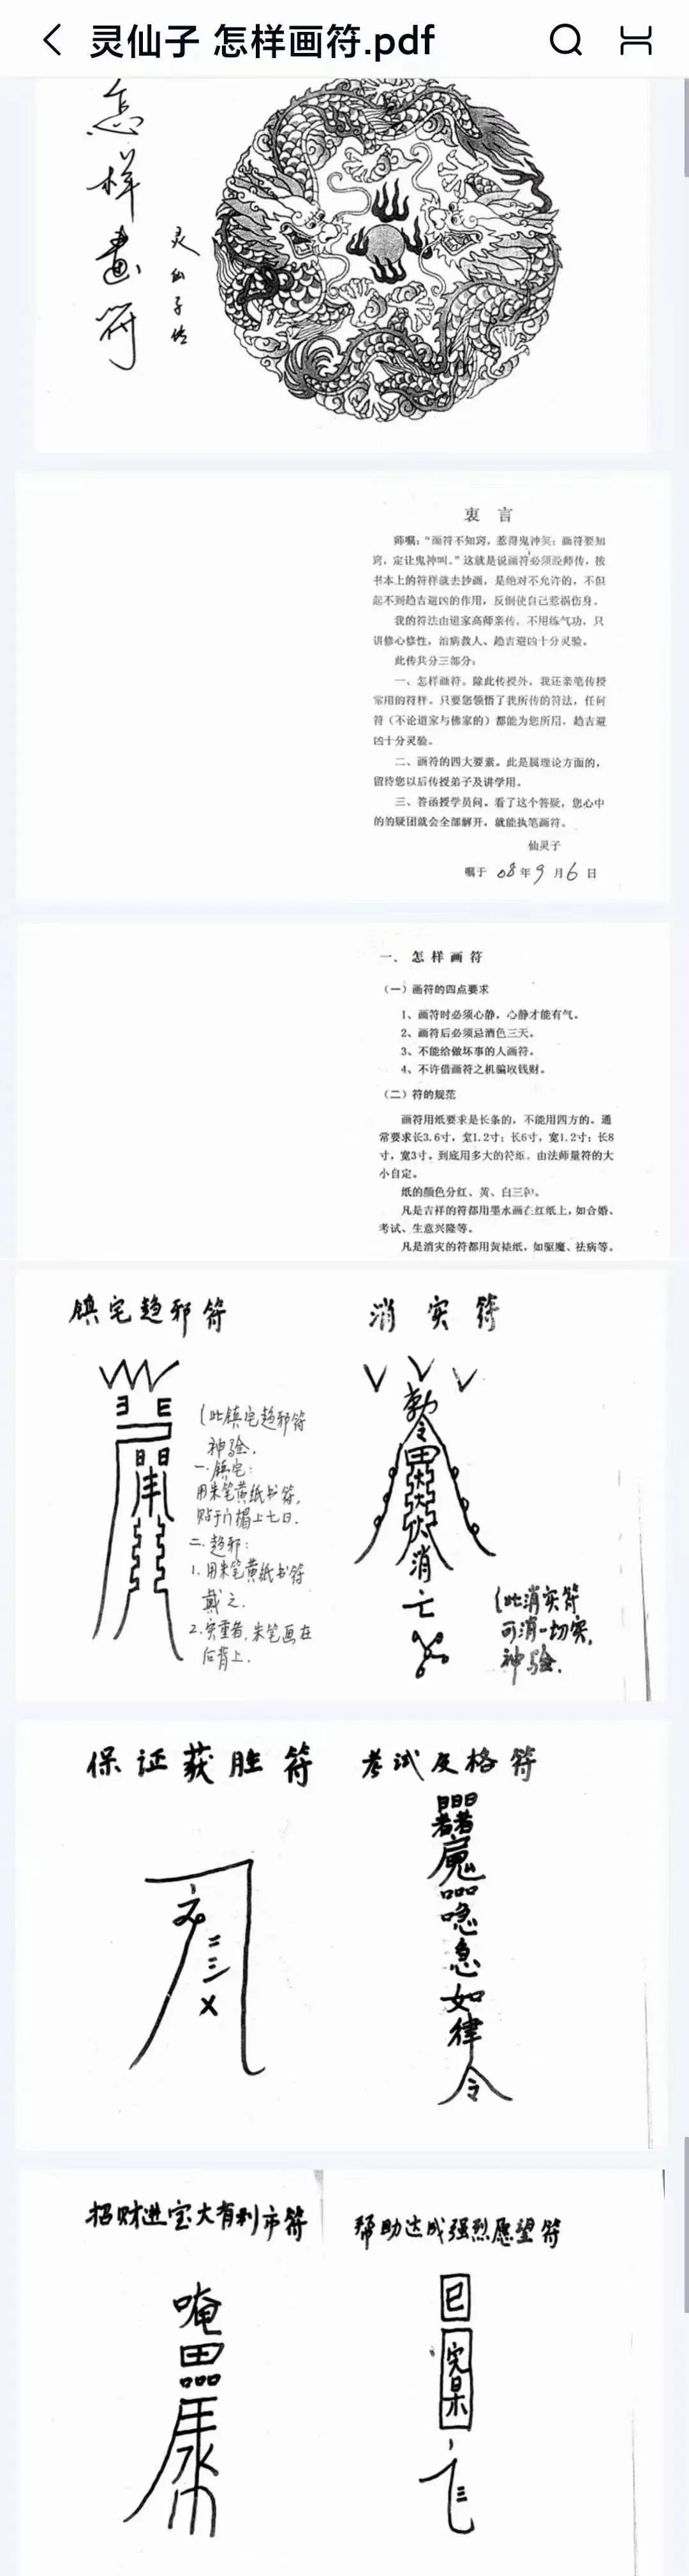 灵仙子 怎样画符.pdf
怎样画符
灵仙子传
衷 言
师嘱：“画符不知窍，惹得鬼神笑；画符要知
窍，定让鬼神叫。”这就是说画符必须经师传，按
书本上的符样就去抄画，是绝对不允许的，不但
起不到趋吉避凶的作用，反倒使自己惹祸伤身。
我的符法由道家高师亲传，不用练气功，只
讲修心修性，治病救人、趋吉避凶十分灵验。
此传共分三部分：
一、怎样画符。除此传授外，我还亲笔传授
常用的符样。只要您领悟了我所传的符法，任何
符（不论道家与佛家的）都能为您所用，趋吉避
凶十分灵验。
二、画符的四大要素。此是属理论方面的，
留待您以后传授弟子及讲学用。
三、答函授学员问。看了这个答疑，您心中
的的疑团就会全部解开，就能执笔画符。
仙灵子
嘱于 08年9月6日
一、怎样画符
（一）画符的四点要求
1、画符时必须心静，心静才能有气。
2、画符后必须忌酒色三天。
3、不能给做坏事的人画符。
4、不许借画符之机骗取钱财。
（二）符的规范
画符用纸要求是长条的，不能用四方的。通
常要求长3.6寸，宽1.2寸；长6寸，宽1.2寸；长8
寸，宽3寸。到底用多大的符纸，由法师量符的大
小自定。
纸的颜色分红、黄、白三种。
凡是吉祥的符都用墨水画在红纸上，如合婚、
考试、生意兴隆等。
凡是消灾的符都用黄裱纸，如驱魔、祛病等。
镇宅趋邪符
(此镇宅趋邪符
神验.
一.镇宅:
用朱笔黄纸书符,
贴于门楣上七日.
二.趋邪:
1.用朱笔黄纸书符
戴之.
2.实重者,朱笔画在
后背上.
消实符
勅
令
田
火
火
火
消
亡
(此消实符
可消一切实,
神验.
保证获胜符
二
三
考试及格符
急
如
律
令
招财进宝大有利市符
唵
田
帮助达成强烈愿望符